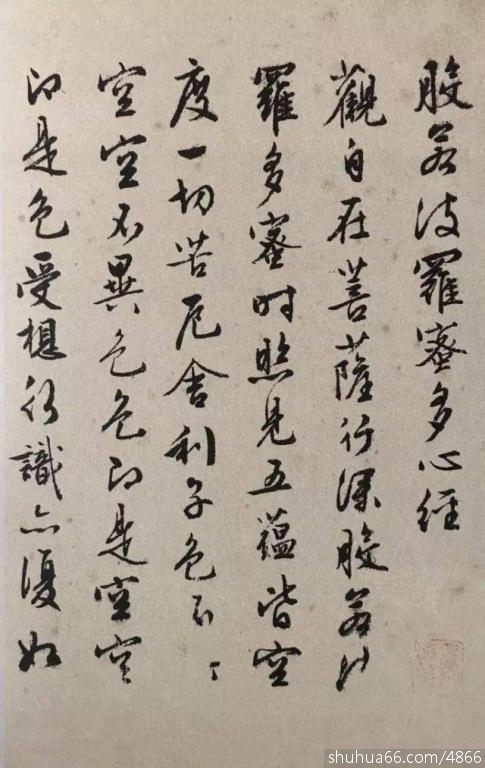 般若波羅蜜多心經
觀自在菩薩行深般若波
羅多蜜時照見五蘊皆空
度一切苦厄舍利子色不
空空不異色色即是空空
即是色受想行識亦復如
shuhua66.com/4866